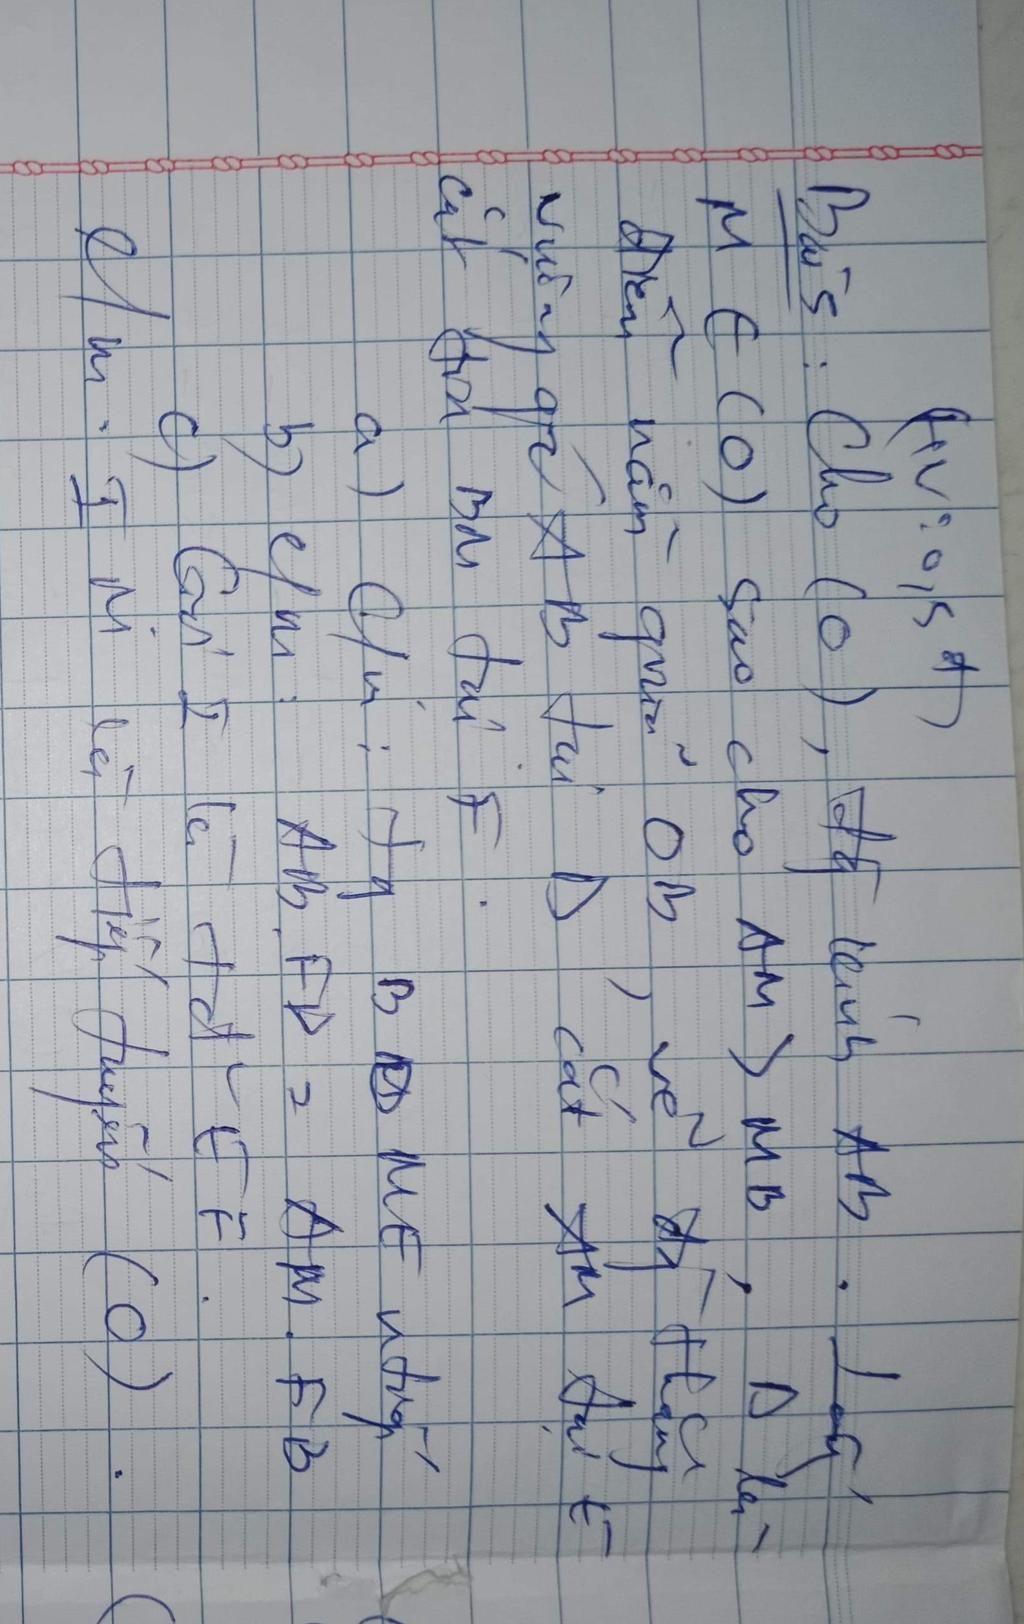 (HV: 0,5đ)
Bài 5: Cho (O), đg kính AB. Lấy
M ∈ (O) sao cho AM > MB, D là
điểm nằm giữa OB, vẽ đg thẳng
vuông góc AB tại D, cắt AM tại E
cắt tia BM tại F.
a) C/m: tg BDME ntiếp
b) c/m: AB.FD = AM.FB
c) Gọi I là tđ EF.
c/m: IM là tiếp tuyến (O).